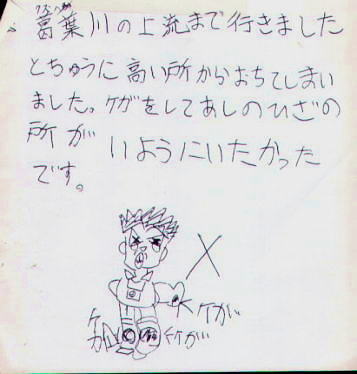 葛葉川の上流まで行きました
とちゅうに高い所からおちてしまい
ました。ケガをしてあしのひざの
所がいようにいたかった
です。
ケガ
ケガ
ケガ